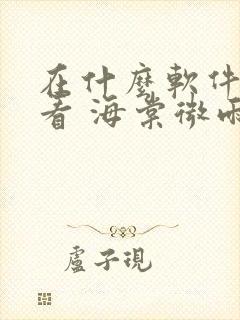 在什麼軟件
看 海棠微雨
盧子現